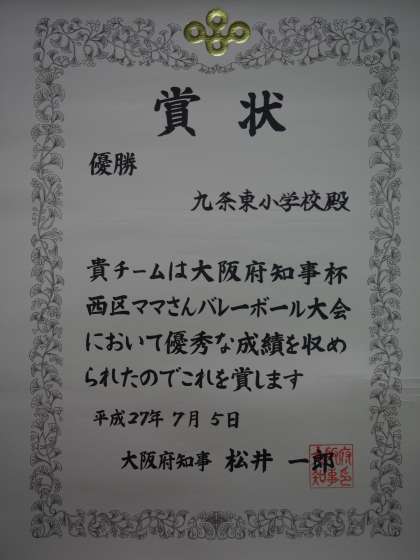 賞状
優勝
九条東小学校殿
貴チームは大阪府知事杯
西区ママさんバレーボール大会
において優秀な成績を収め
られたのでこれを賞します
平成27年7月5日
大阪府知事 松井一郎